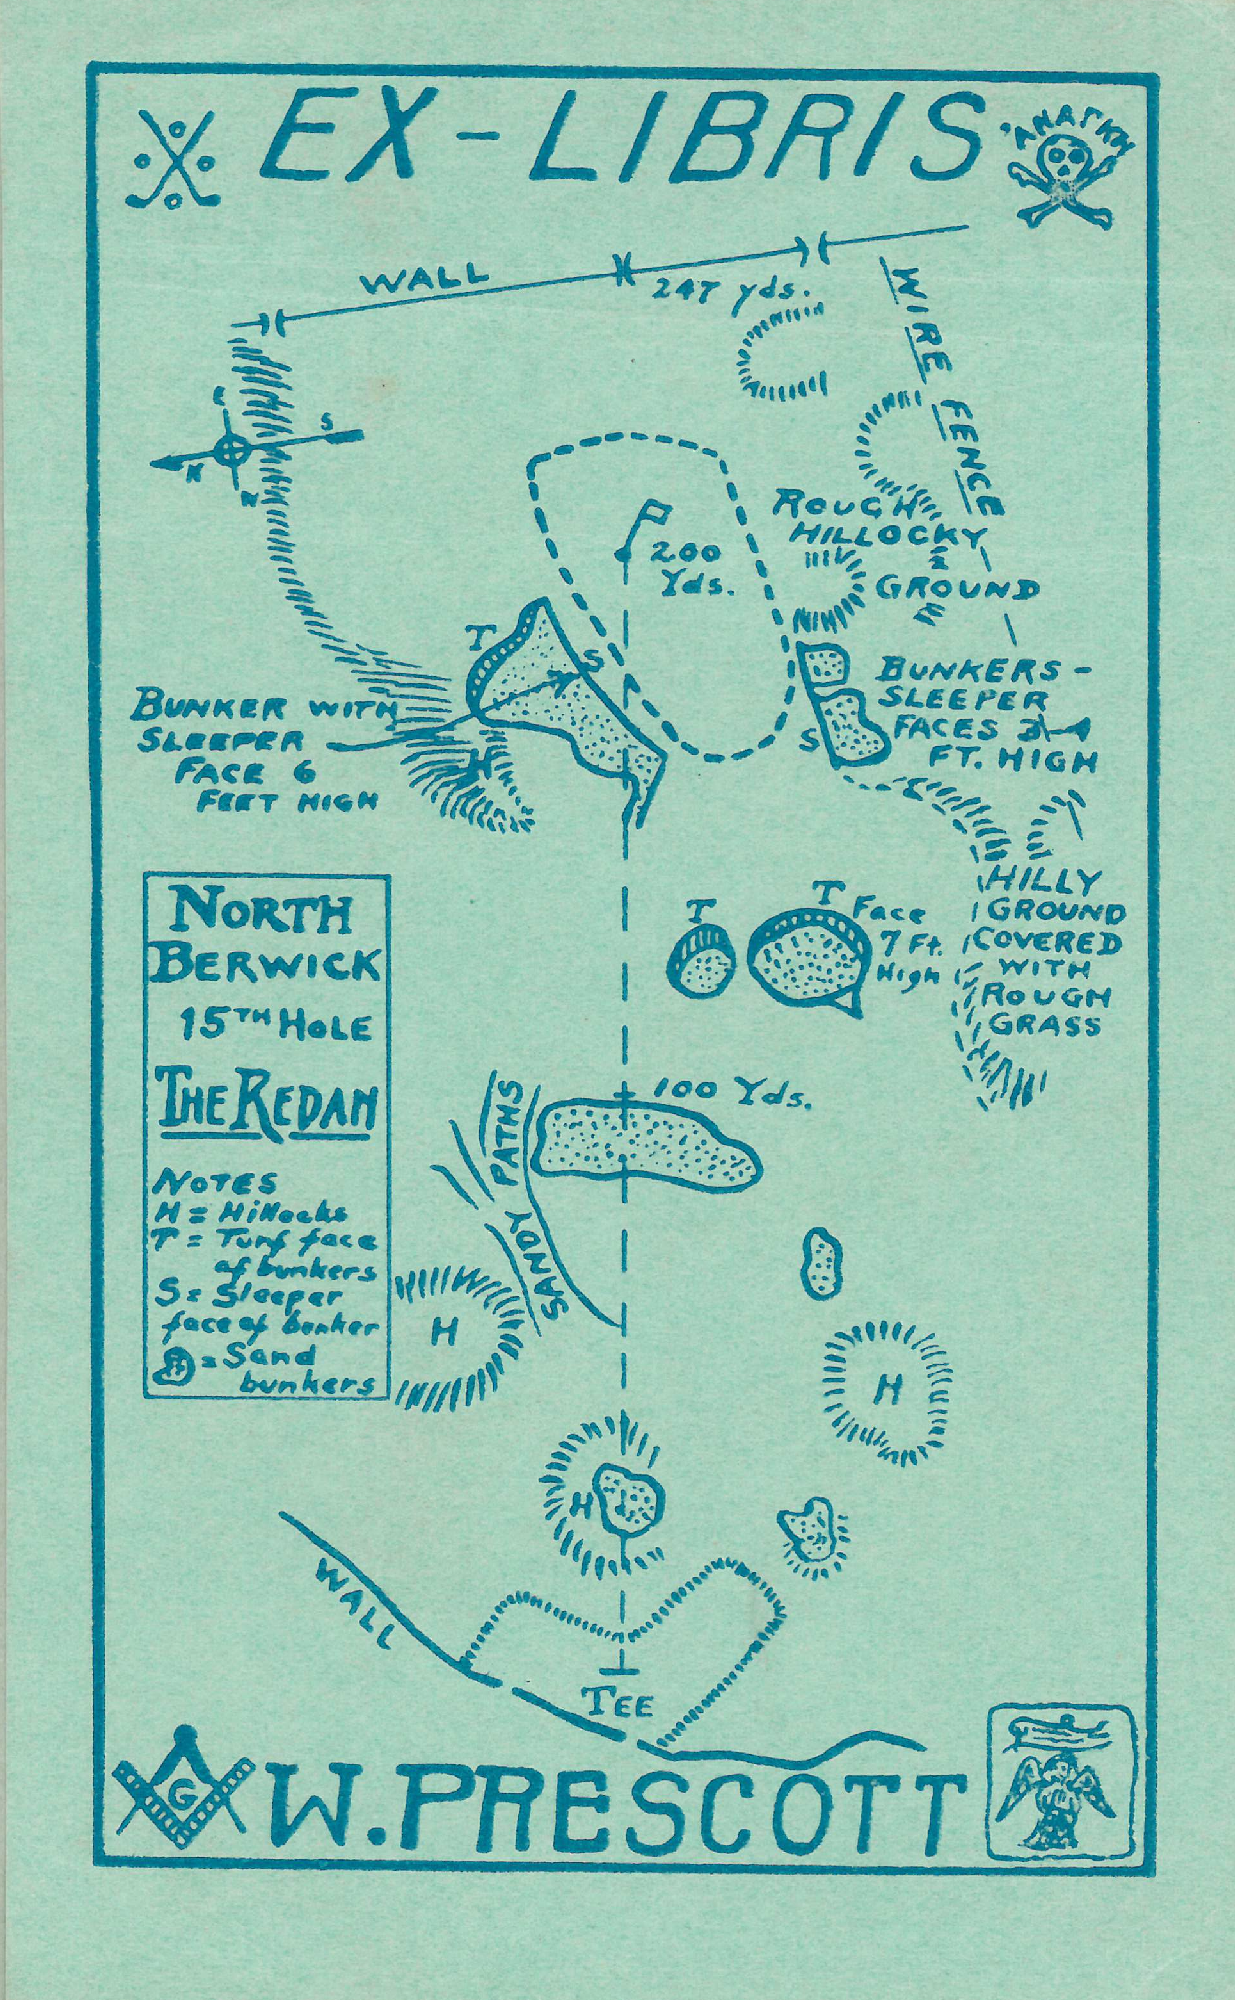 EX-LIBRIS
'ΑΝΑΓΚΗ
WALL
247 yds.
WIRE FENCE
E
S
N
200
Yds.
ROUGH
HILLOCKY
GROUND
T
S
BUNKER WITH
SLEEPER
FACE 6
FEET HIGH
H
BUNKERS-
SLEEPER
FACES 3-4
FT. HIGH
S
NORTH
BERWICK
15TH HOLE
THE REDAN
NOTES
H = Hillocks
T = Turf face
of bunkers
S = Sleeper
face of bunker
= Sand
bunkers
T
T Face
7 Ft.
High
HILLY
GROUND
COVERED
WITH
ROUGH
GRASS
100 Yds.
SANDY PATHS
H
H
H
WALL
TEE
G
W. PRESCOTT